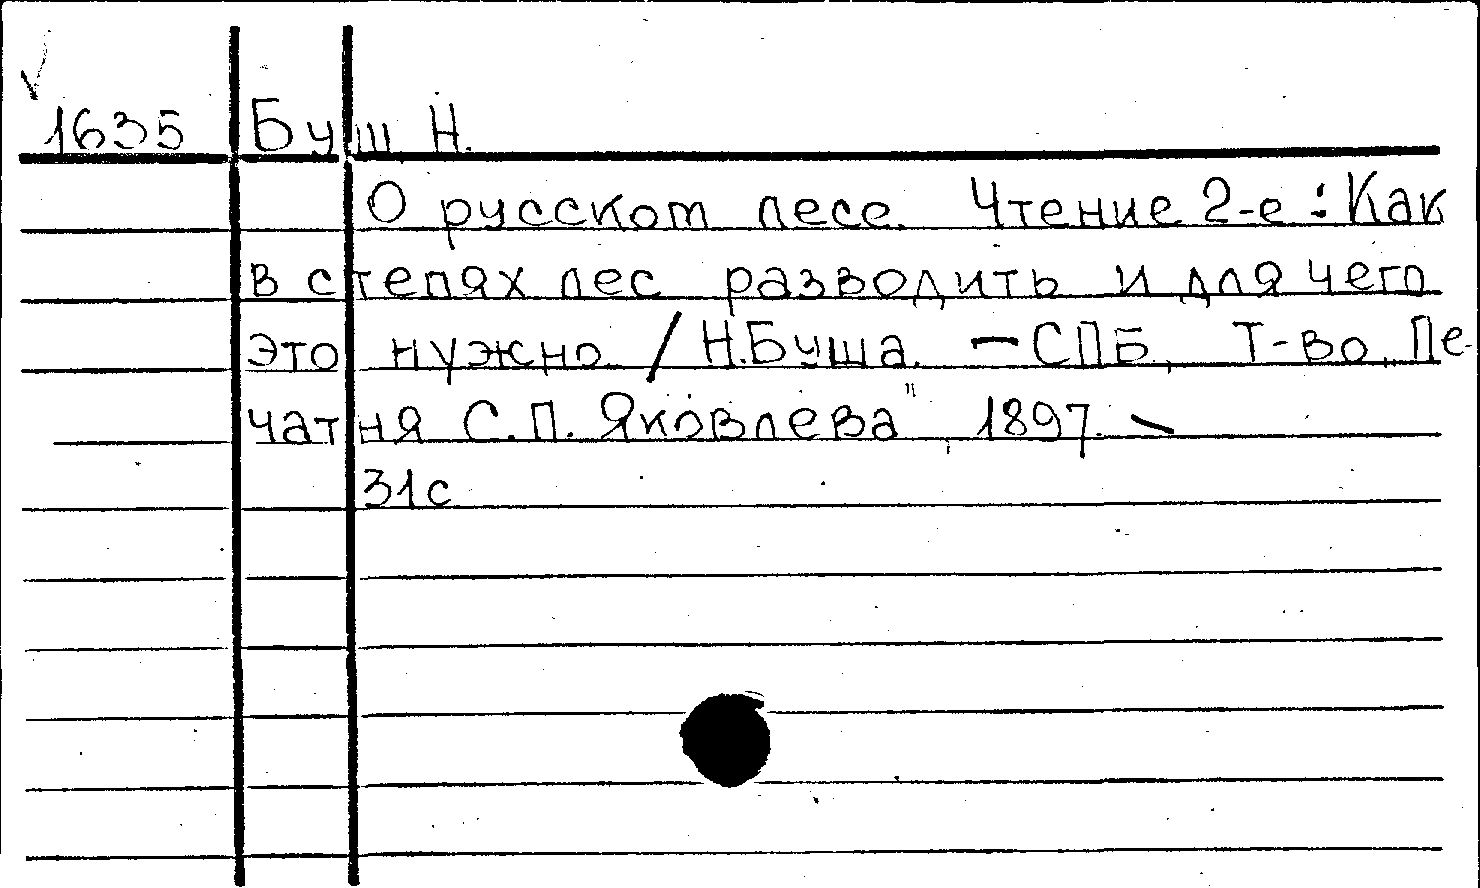 1635 Буш Н.
О русском лесе. Чтение 2-е: Как
в степях лес разводить и для чего
это нужно / Н.Буша. - СПБ, Т-во „Пе-
чатня С.П. Яковлева", 1897. -
31с